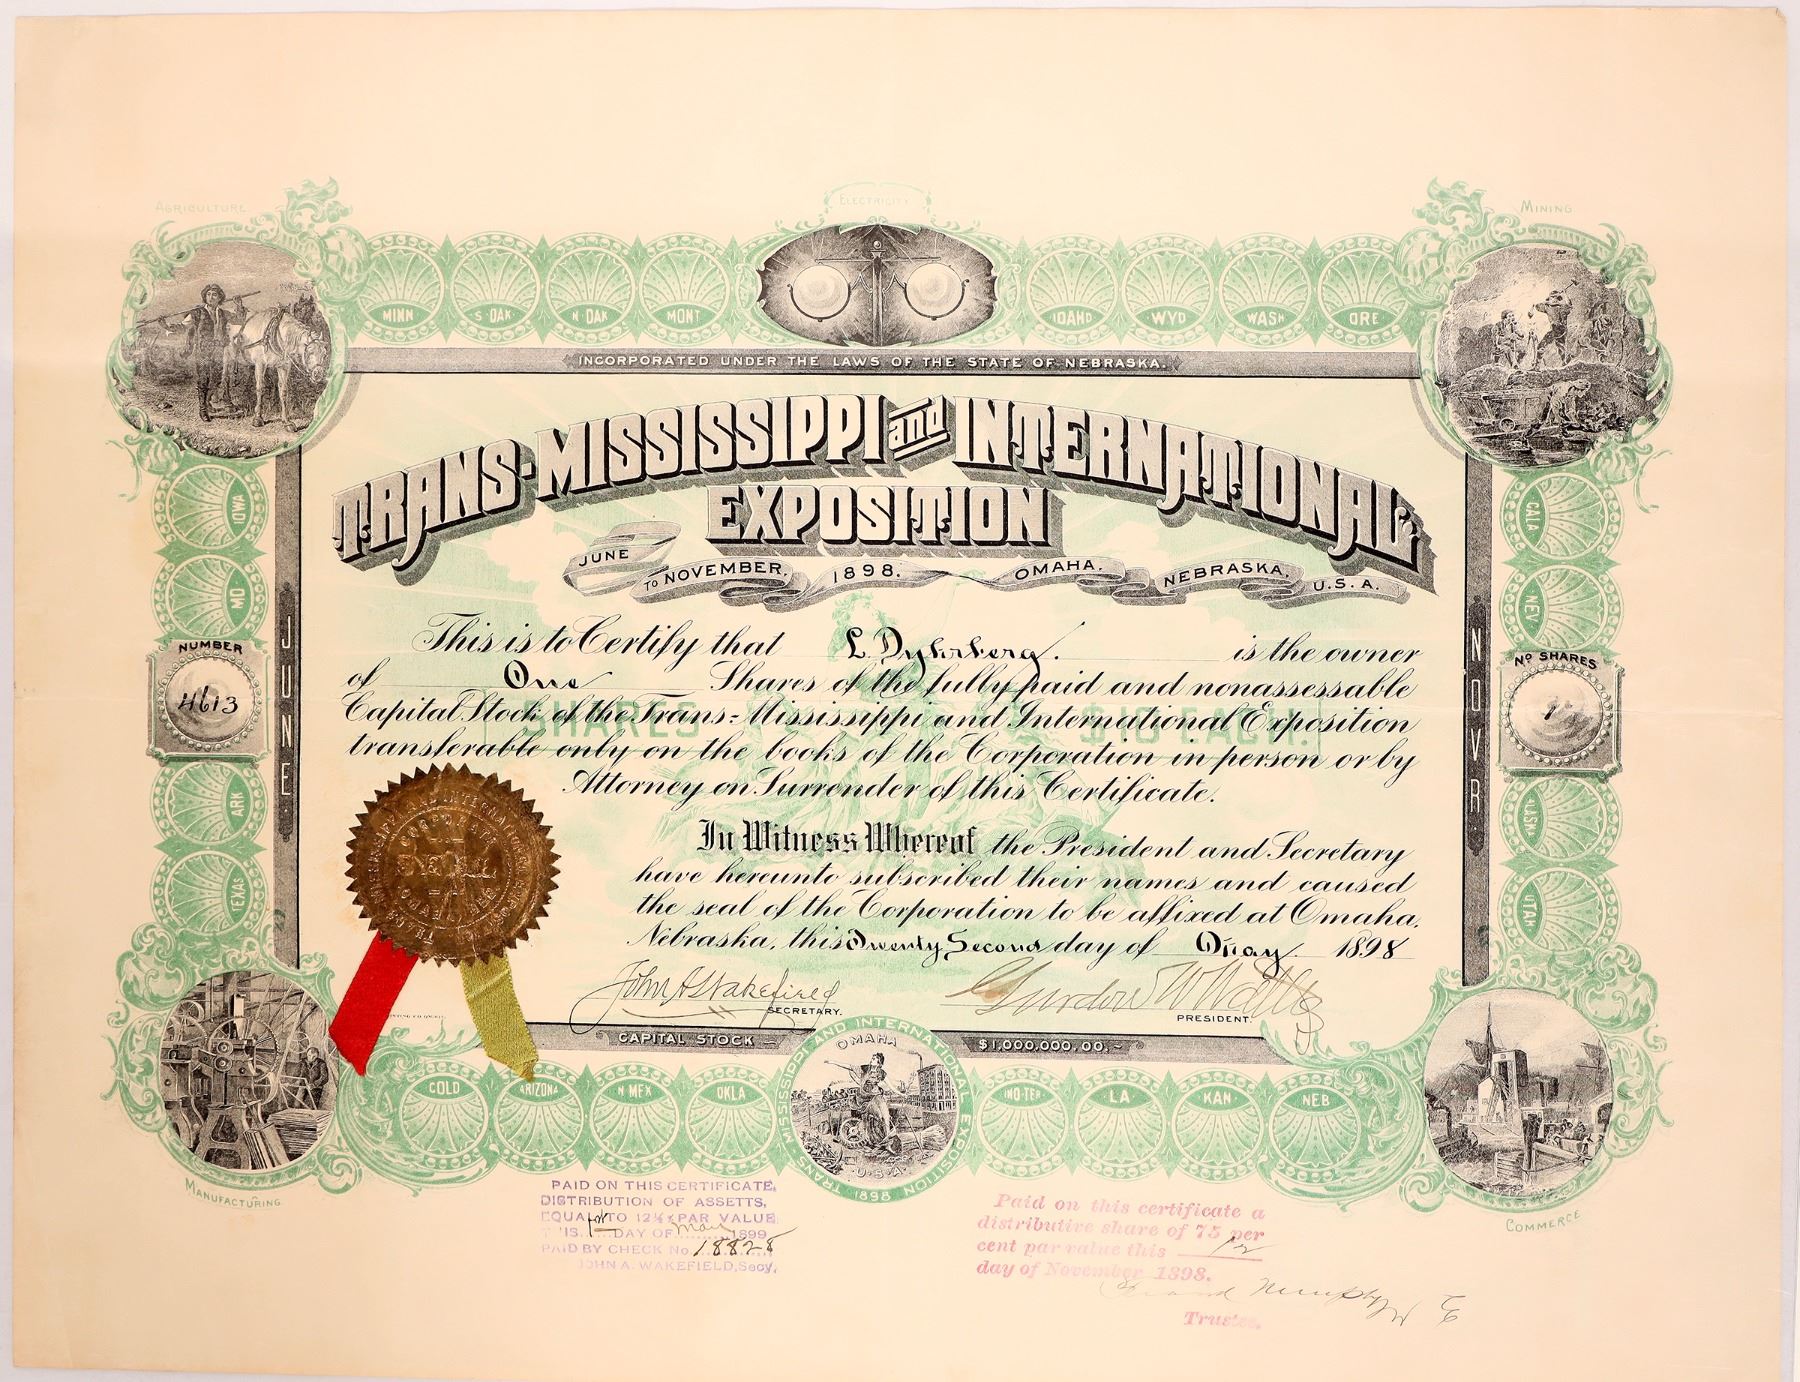 ELECTRICITY
AGRICULTURE
MINING
MINN
S DAK
N DAK
MONT
IDAHO
WYO
WASH
ORE
INCORPORATED UNDER THE LAWS OF THE STATE OF NEBRASKA.
TRANS-MISSISSIPPI and INTERNATIONAL
EXPOSITION
JUNE TO NOVEMBER. 1898. OMAHA. NEBRASKA. U.S.A.
IOWA
MO
NUMBER
4613
ARK
TEXAS
JUNE
CALA
NEV
No SHARES
1
UTAH
NOVR
This is to Certify that L Dyhrberg. is the owner
of One Shares of the fully paid and nonassessable
Capital Stock of the Trans-Mississippi and International Exposition
transferable only on the books of the Corporation in person or by
Attorney on Surrender of this Certificate.
SHARES $10 EACH.
In Witness Whereof the President and Secretary
have hereunto subscribed their names and caused
the seal of the Corporation to be affixed at Omaha,
Nebraska, this Twenty Second day of May 1898
John A Wakefield
SECRETARY.
Gurdon W Wattles
PRESIDENT.
CAPITAL STOCK
$1,000,000.00.
COLO
ARIZONA
N MEX
OKLA
TRANS-MISSISSIPPI AND INTERNATIONAL EXPOSITION 1898
OMAHA
U.S.A.
IND-TER
LA
KAN
NEB
MANUFACTURING
COMMERCE
PAID ON THIS CERTIFICATE,
DISTRIBUTION OF ASSETTS,
EQUAL TO 12½% PAR VALUE
THIS 1st DAY OF May 1899
PAID BY CHECK No 18828
JOHN A. WAKEFIELD, Secy,
Paid on this certificate a
distributive share of 75 per
cent par value this 12
day of November 1898.
Trustee.